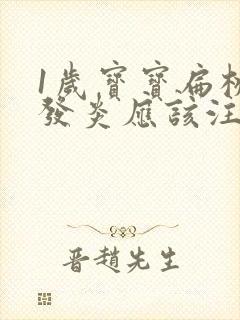 1歲寶寶扁桃
發炎應該注
晉趙先生